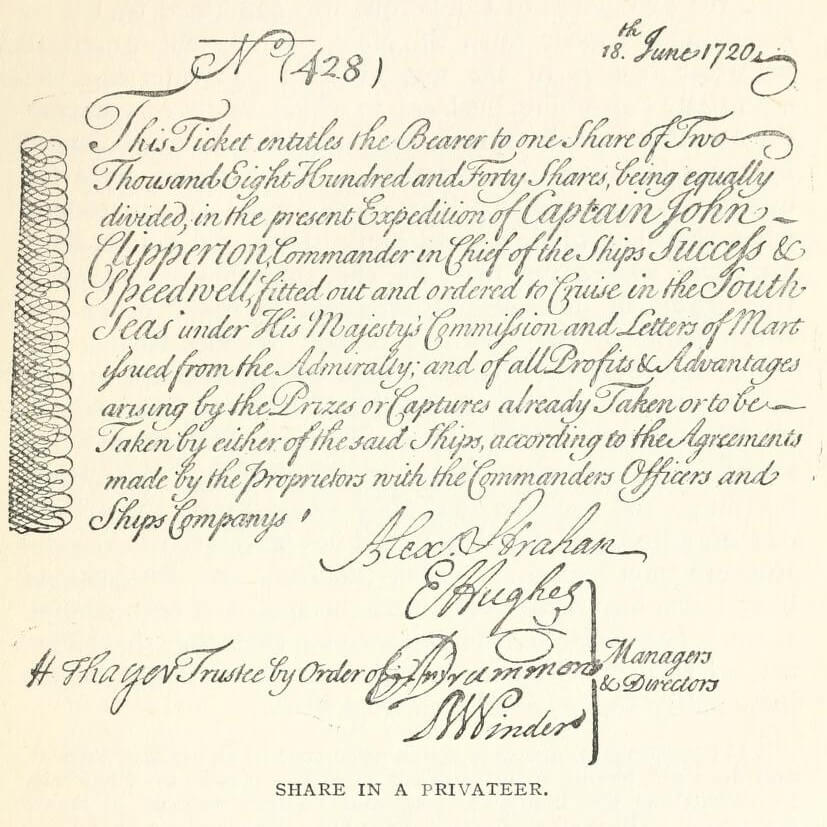 No (428)
18.th June 1720
This Ticket entitles the Bearer to one Share of Two
Thousand Eight Hundred and Forty Shares, being equally
divided, in the present Expedition of Captain John
Clipperton, Commander in Chief of the Ships Success &
Speedwell, fitted out and ordered to Cruise in the South
Seas under His Majesty's Commission and Letters of Mart
issued from the Admiralty; and of all Profits & Advantages
arising by the Prizes or Captures already Taken or to be
Taken by either of the said Ships, according to the Agreements
made by the Proprietors with the Commanders Officers and
Ships Companys
Alex. Strahan
E Hughes
H Thayer Trustee by Order of Drummond
Winder
Managers
& Directors
SHARE IN A PRIVATEER.